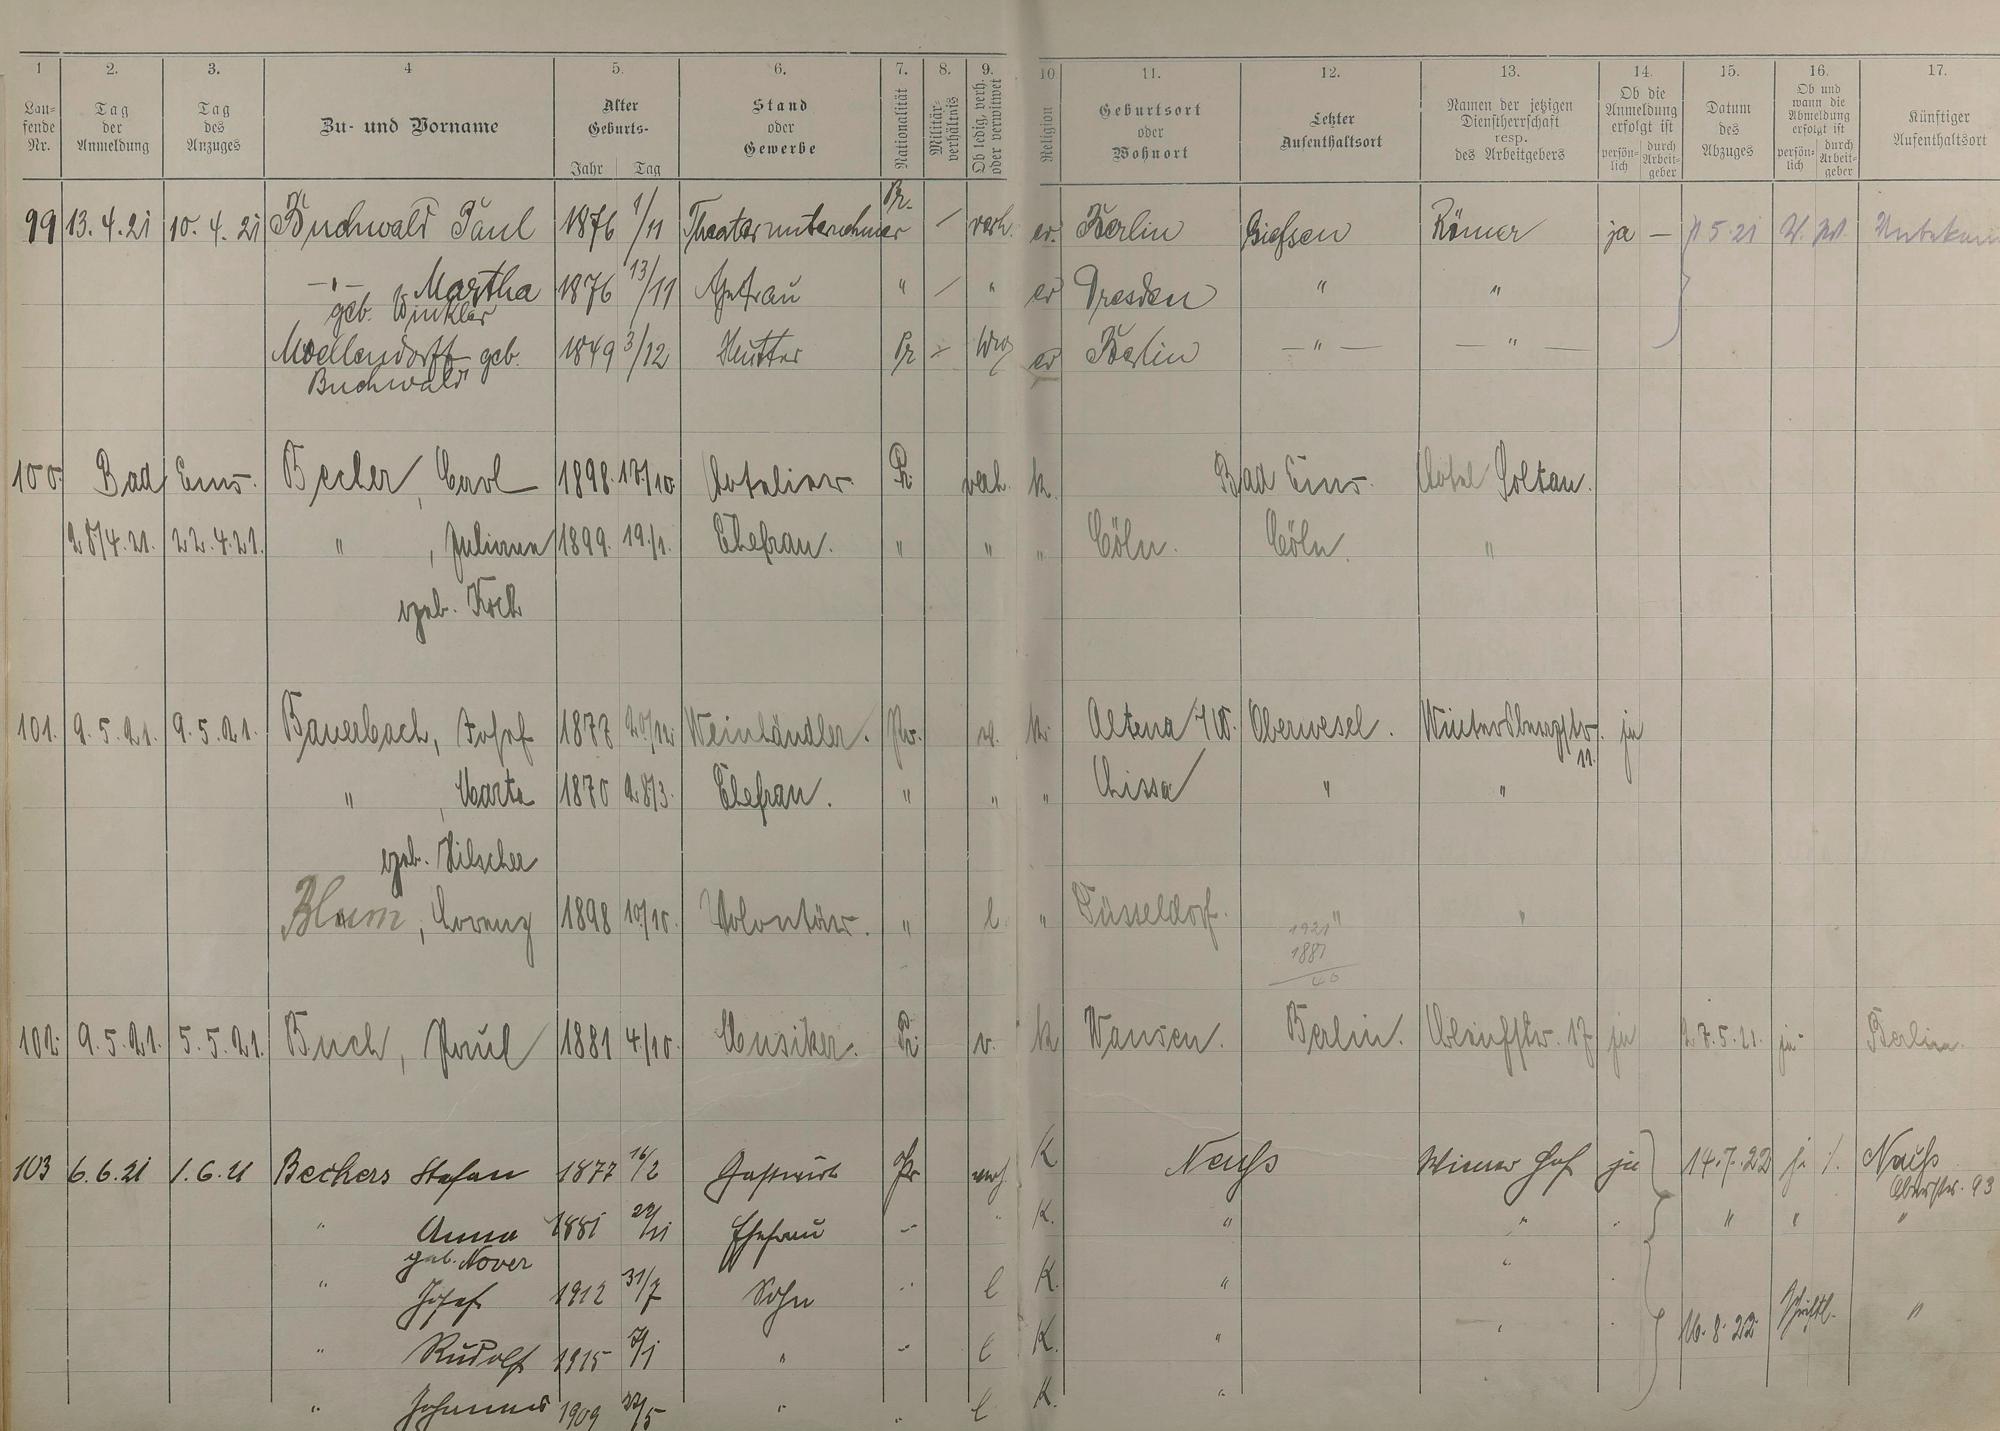 1 2. 3. 4 5. 6. 7. 8. 9. 10 11. 12. 13. 14. 15. 16. 17.
Laufende Nr.
Tag der Anmeldung
Tag des Anzuges
Zu- und Vorname
Alter Geburts- Jahr Tag
Stand oder Gewerbe
Nationalität
Militärverhältnis
Ob ledig, verh. oder verwitwet
Religion
Geburtsort oder Wohnort
Letzter Aufenthaltsort
Namen der jetzigen Dienstherrschaft resp. des Arbeitgebers
Ob die Anmeldung erfolgt ist persönlich durch Arbeitgeber
Datum des Abzuges
Ob und wann die Abmeldung erfolgt ist persönlich durch Arbeitgeber
Künftiger Aufenthaltsort
99 13.4.21 10.4.21 Buchwald Paul 1876 1/11 Theaterunternehmer Pr. — verh. ev. Berlin Römer ja — 5.21
-"- Martha 1876 13/11 Ehefrau " — " ev Dresden " "
geb. Winkler
Moellendorff geb. 1849 3/12 Mutter Pr — Wwe ev Berlin — " — — " —
Buchwald
100. Bad Ems. Becher, Carl 1898. 17./10. Hotelier Pr verh. k. Bad Ems. Hotel Soltau.
28/4.21. 22.4.21. " , Juliane 1899. 19./1. Ehefrau. " " " Cöln. Cöln. "
geb. Koch
101. 9.5.21. 9.5.21. Bauerbach, Josef 1877 20/12. Weinhändler. Pr. v. k. Altena i/W. Oberwesel. ja
11.
" , Marta 1870 28/3. Ehefrau. " " " Lissa " "
geb. Hilscher
Blum, Lorenz 1898 10/10. Volontär. " l. " Düsseldorf. " "
1921
1881
40
102. 9.5.21. 5.5.21. Buch, Paul 1881 4/10. Musiker. Pr v. k Wansen. Berlin. 17 ja 27.5.21. ja Berlin.
103 6.6.21 1.6.21 Beckers Stefan 1877 16/2 Gastwirt Pr verh. K Neuß Wiener Hof ja 14.7.22 ja /. Neuß
93
" Anna 1881 22/11 Ehefrau " " K. " " " " " "
geb. Nover
" Josef 1912 31/7 Sohn " l K. " "
" Rudolf 1915 7/1 " " l K. " " 16.8.22 schriftl. "
" Johannes 1909 22/5 " " l K. "